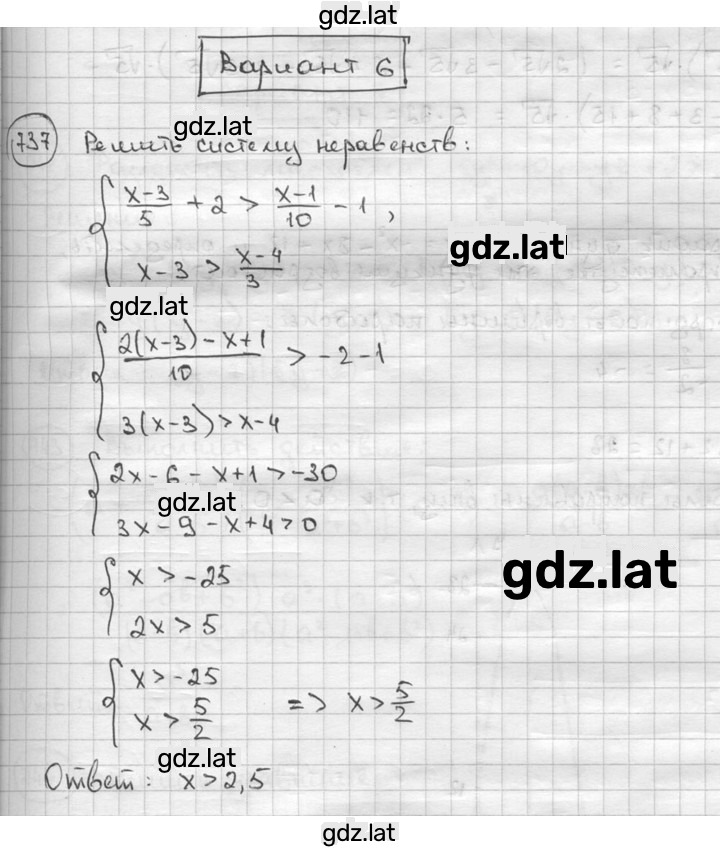 gdz.lat
Вариант 6
gdz.lat
737 Решить систему неравенств:
{ (x-3)/5 + 2 > (x-1)/10 - 1,
x-3 > (x-4)/3
gdz.lat
gdz.lat
{ (2(x-3)-x+1)/10 > -2-1
3(x-3)>x-4
{ 2x-6-x+1>-30
gdz.lat
3x-9-x+4>0
gdz.lat
{ x>-25
2x>5
{ x>-25
x>5/2 => x>5/2
gdz.lat
Ответ: x>2,5
gdz.lat